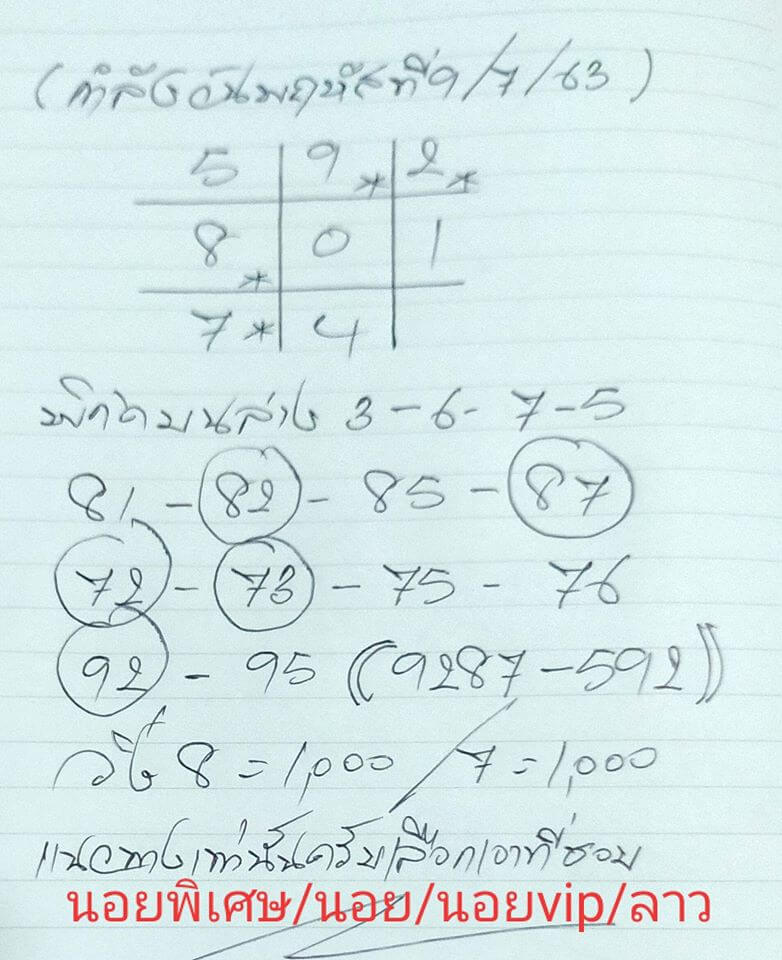 (กำลังวันพฤหัสที่ 9/7/63)
5 9* 2*
8* 0 1
7* 4
พิกัดบนล่าง 3-6-7-5
81-82-85-87
72-73-75-76
92-95 ((9287-592))
วิ่ง 8=1,000/7=1,000
แนวทางเท่านั้นครับเลือกเอาที่ชอบ
นอยพิเศษ/นอย/นอยvip/ลาว